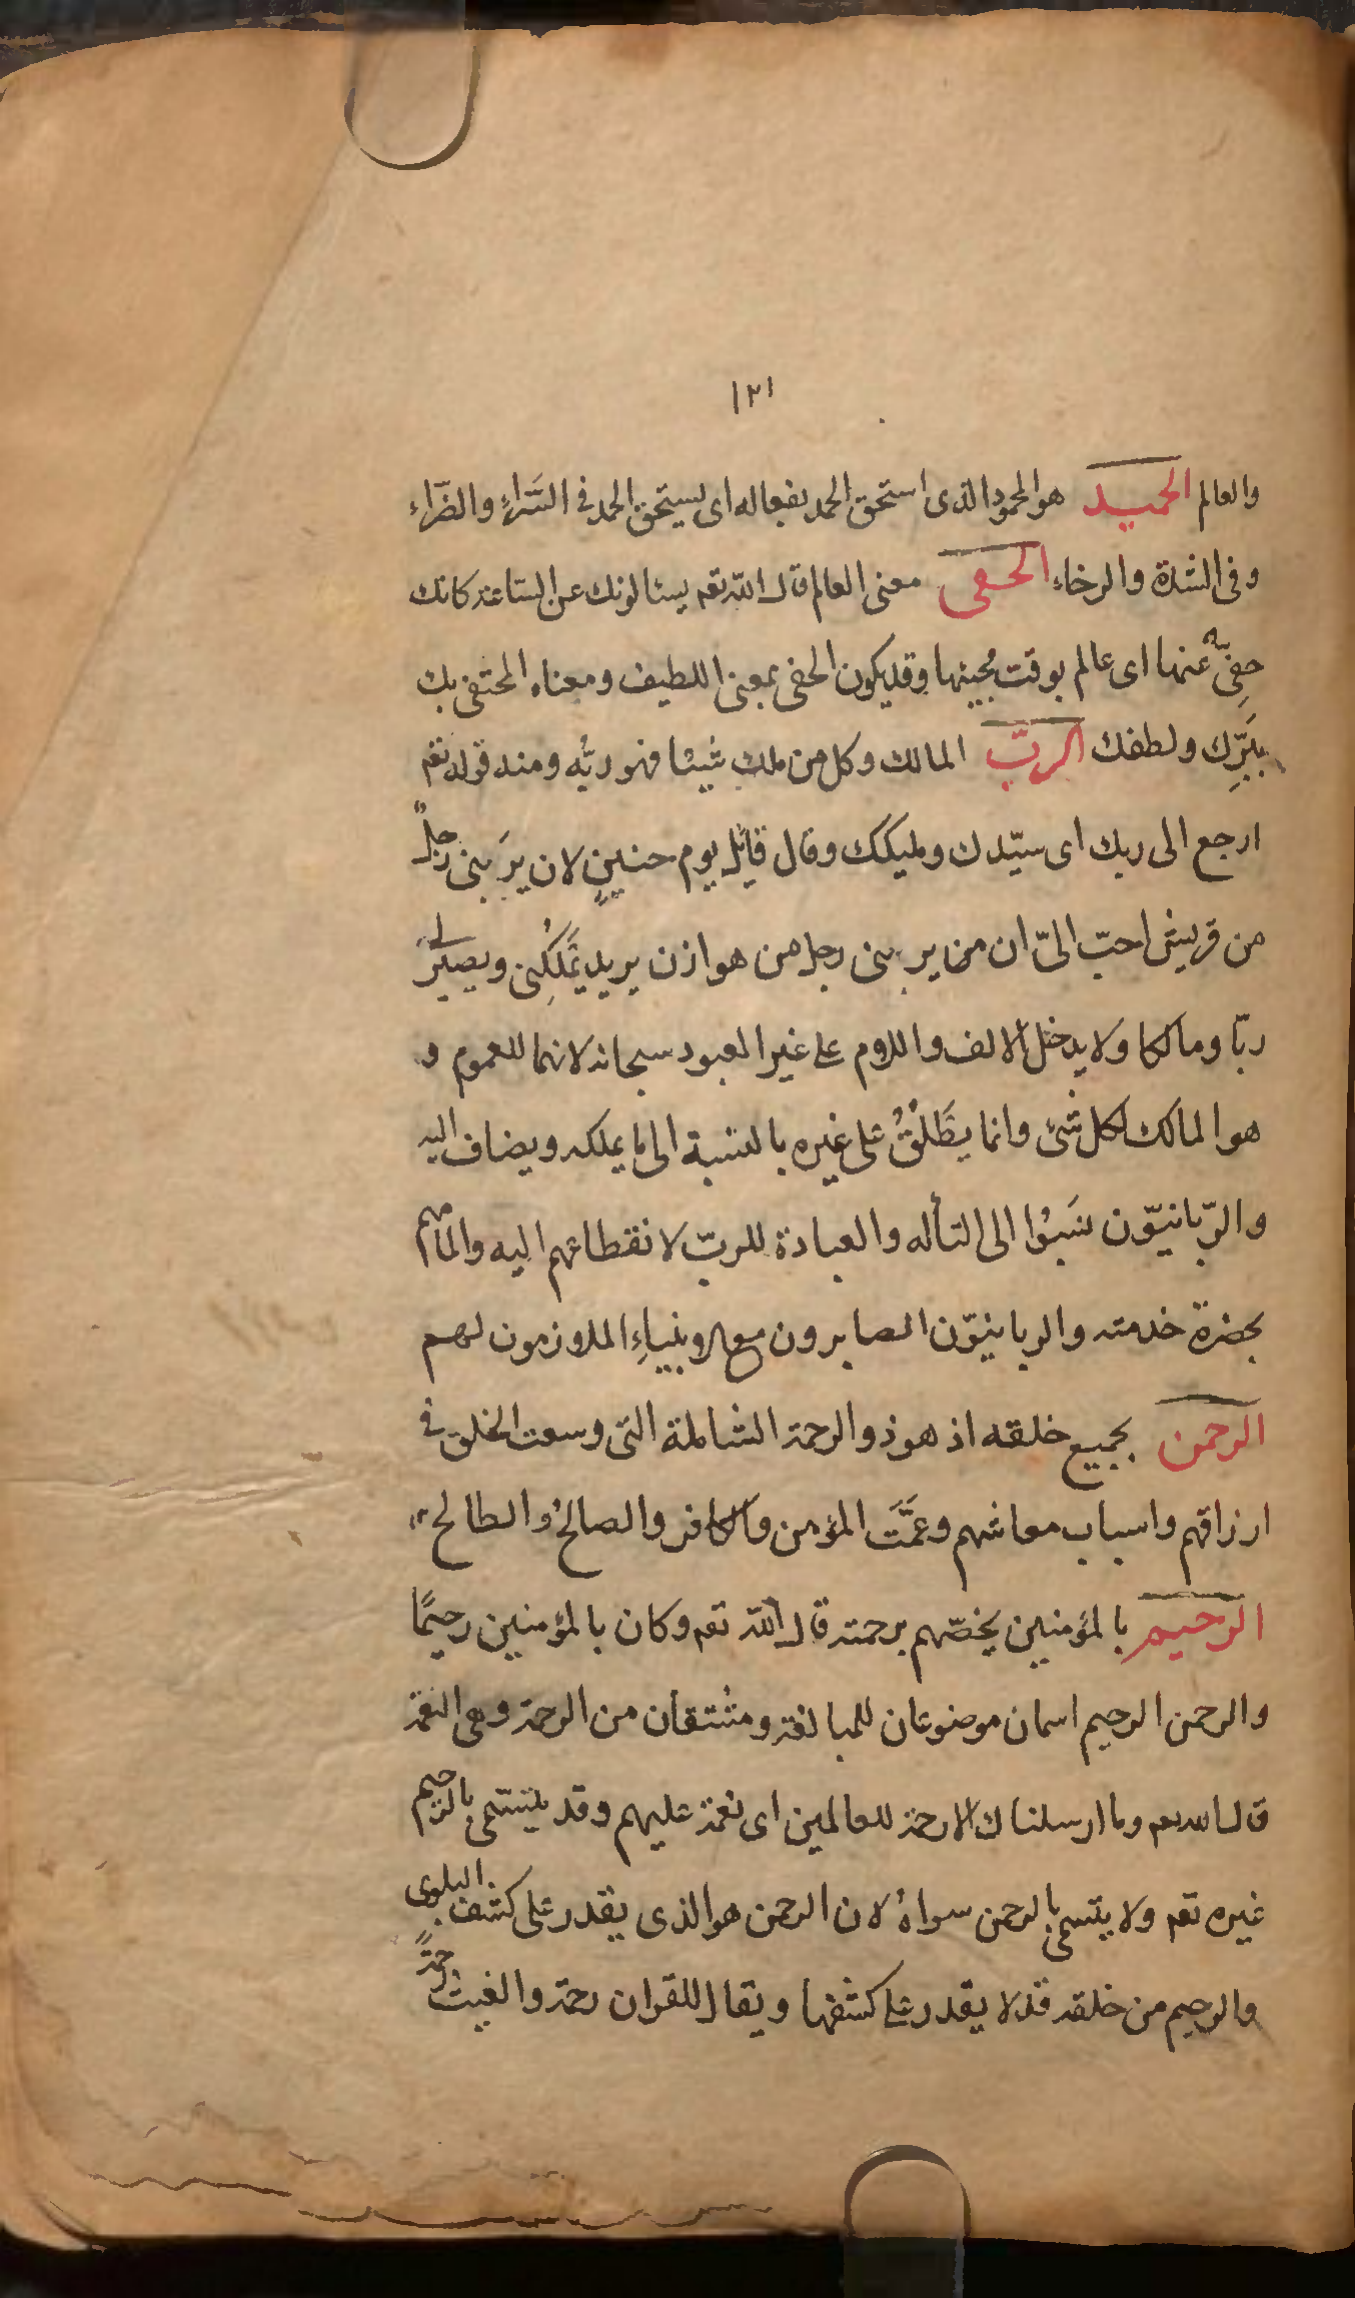 ١٢١
والعالم الحميد هو المحمود الذى استحق الحمد بفعاله اى يستحق الحمد فى السَّراءِ والضرَّاء
وفى الشدة والرخاء الحفى معنى العالم قال اللّه تعم يسئالونك عن الساعة كانك
حِفىٌّ عنها اى عالم بوقت مجيئها وقد يكون الحفى بمعنى اللطيف ومعناه المحتفى بك
ببَرِّك ولطفك الربّ المالك وكل من ملك شيئا فهو ربُّه ومنه قوله تعم
ارجع الى ربك اى سيّدك ومليكك وقال قايل يوم حنينٍ لان يرَبنى رجلٌ
من قريش احبّ الىّ ان من يربنى رجل من هوازن يريد يَملكُنى ويصير لى
ربّا ومالكا ولا يدخل الالف واللام على غير المعبود سبحانه لانهما للعموم و
هو المالك لكل شئ وانما يطَلقُ على غيره بالنسبة الى ما يملكه ويضاف اليه
والرّبانيّون نسَبُوا الى التأله والعبادة للربّ لانقطاعهم اليه والمامهم
بحضرة خدمته والربانيوّن الصابرون مع الانبياءِ الملازمون لهم
الرحمن بجميع خلقه اذ هو ذو الرحمة الشاملة التى وسعت الخلق فى
ارزاقهم واسباب معاشهم وعمَّتَ المؤمن والكافر والصالحُ والطالح
الرحيم بالمؤمنين يخصّهم برحمته قال اللّه تعم وكان بالمؤمنين رحيمًا
والرحمن الرحيم اسمان موضوعان للمبالغة ومشتقان من الرحمة وهى النعمة
قال الله تعم وما ارسلناك الا رحمة للعالمين اى نعمة عليهم وقد يتسمّى بالرحيم
غيره تعم ولا يتسمى بالرحمن سواهُ لان الرحمن هو الذى يقدر على كشف البلوى
والرحيم من خلقه قد لا يقدر على كشفها ويقال للقران رحمة والغيث رحمةً